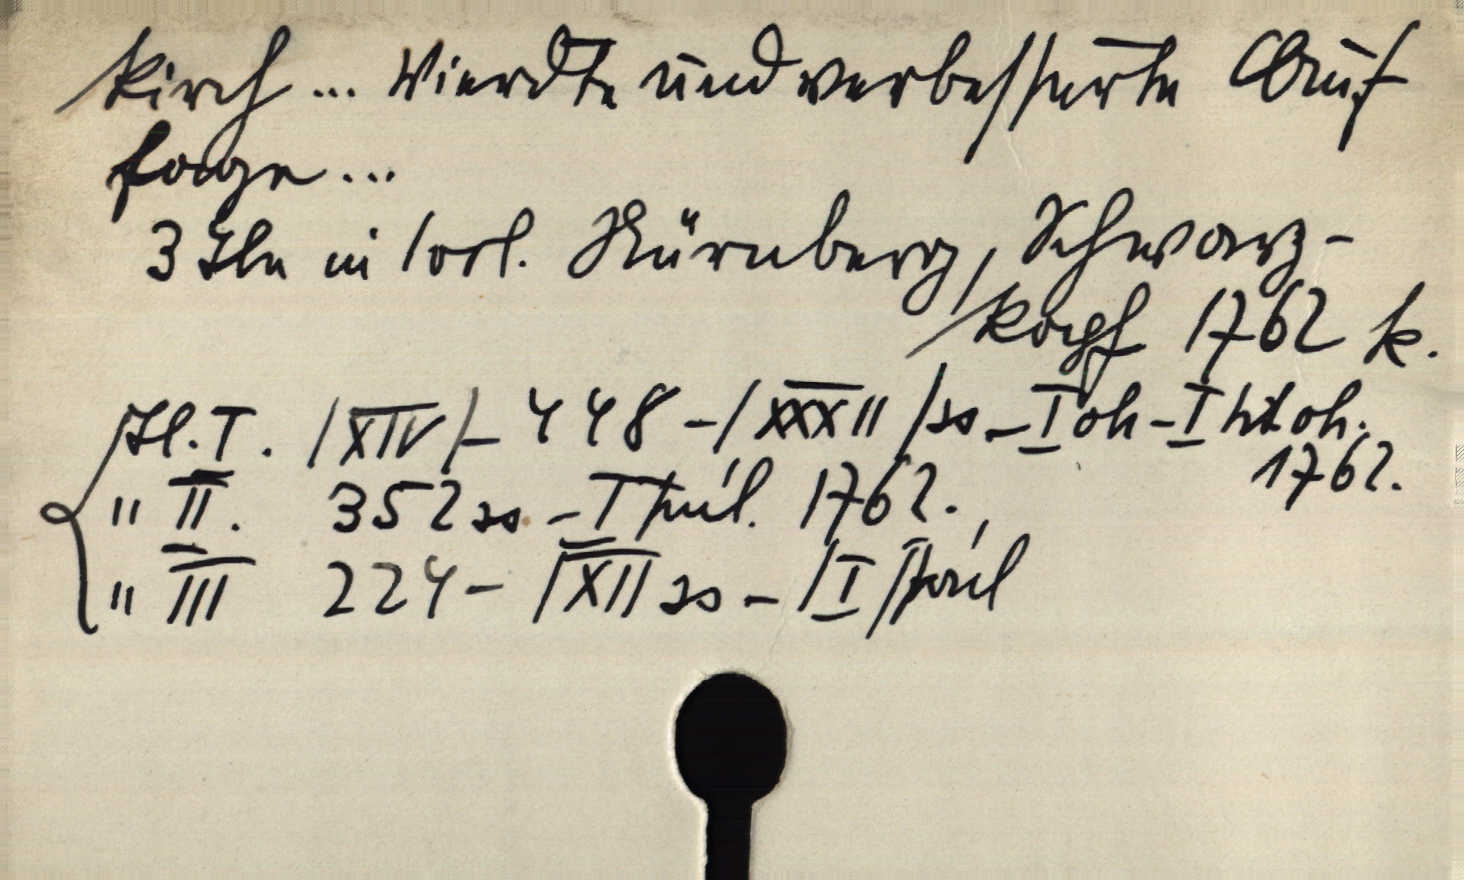 Kirch... Vierdte und verbesserte Auf
lage...
3 Thle in 1 vol. Nürnberg, Schwarz-
kopf 1762 k.
Thl. I. /XIV/ - 448 - /XXXII/ ss - I - I
1762.
" II. 352 ss - I 1762.
" III 224 - /XII ss - /I